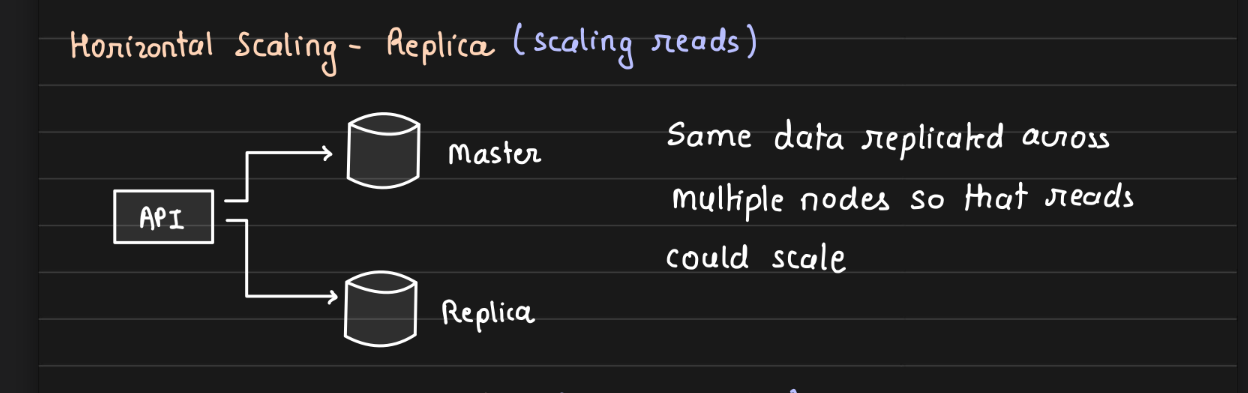 Horizontal Scaling - Replica (scaling reads)
Master
API
Replica
Same data replicated across
multiple nodes so that reads
could scale